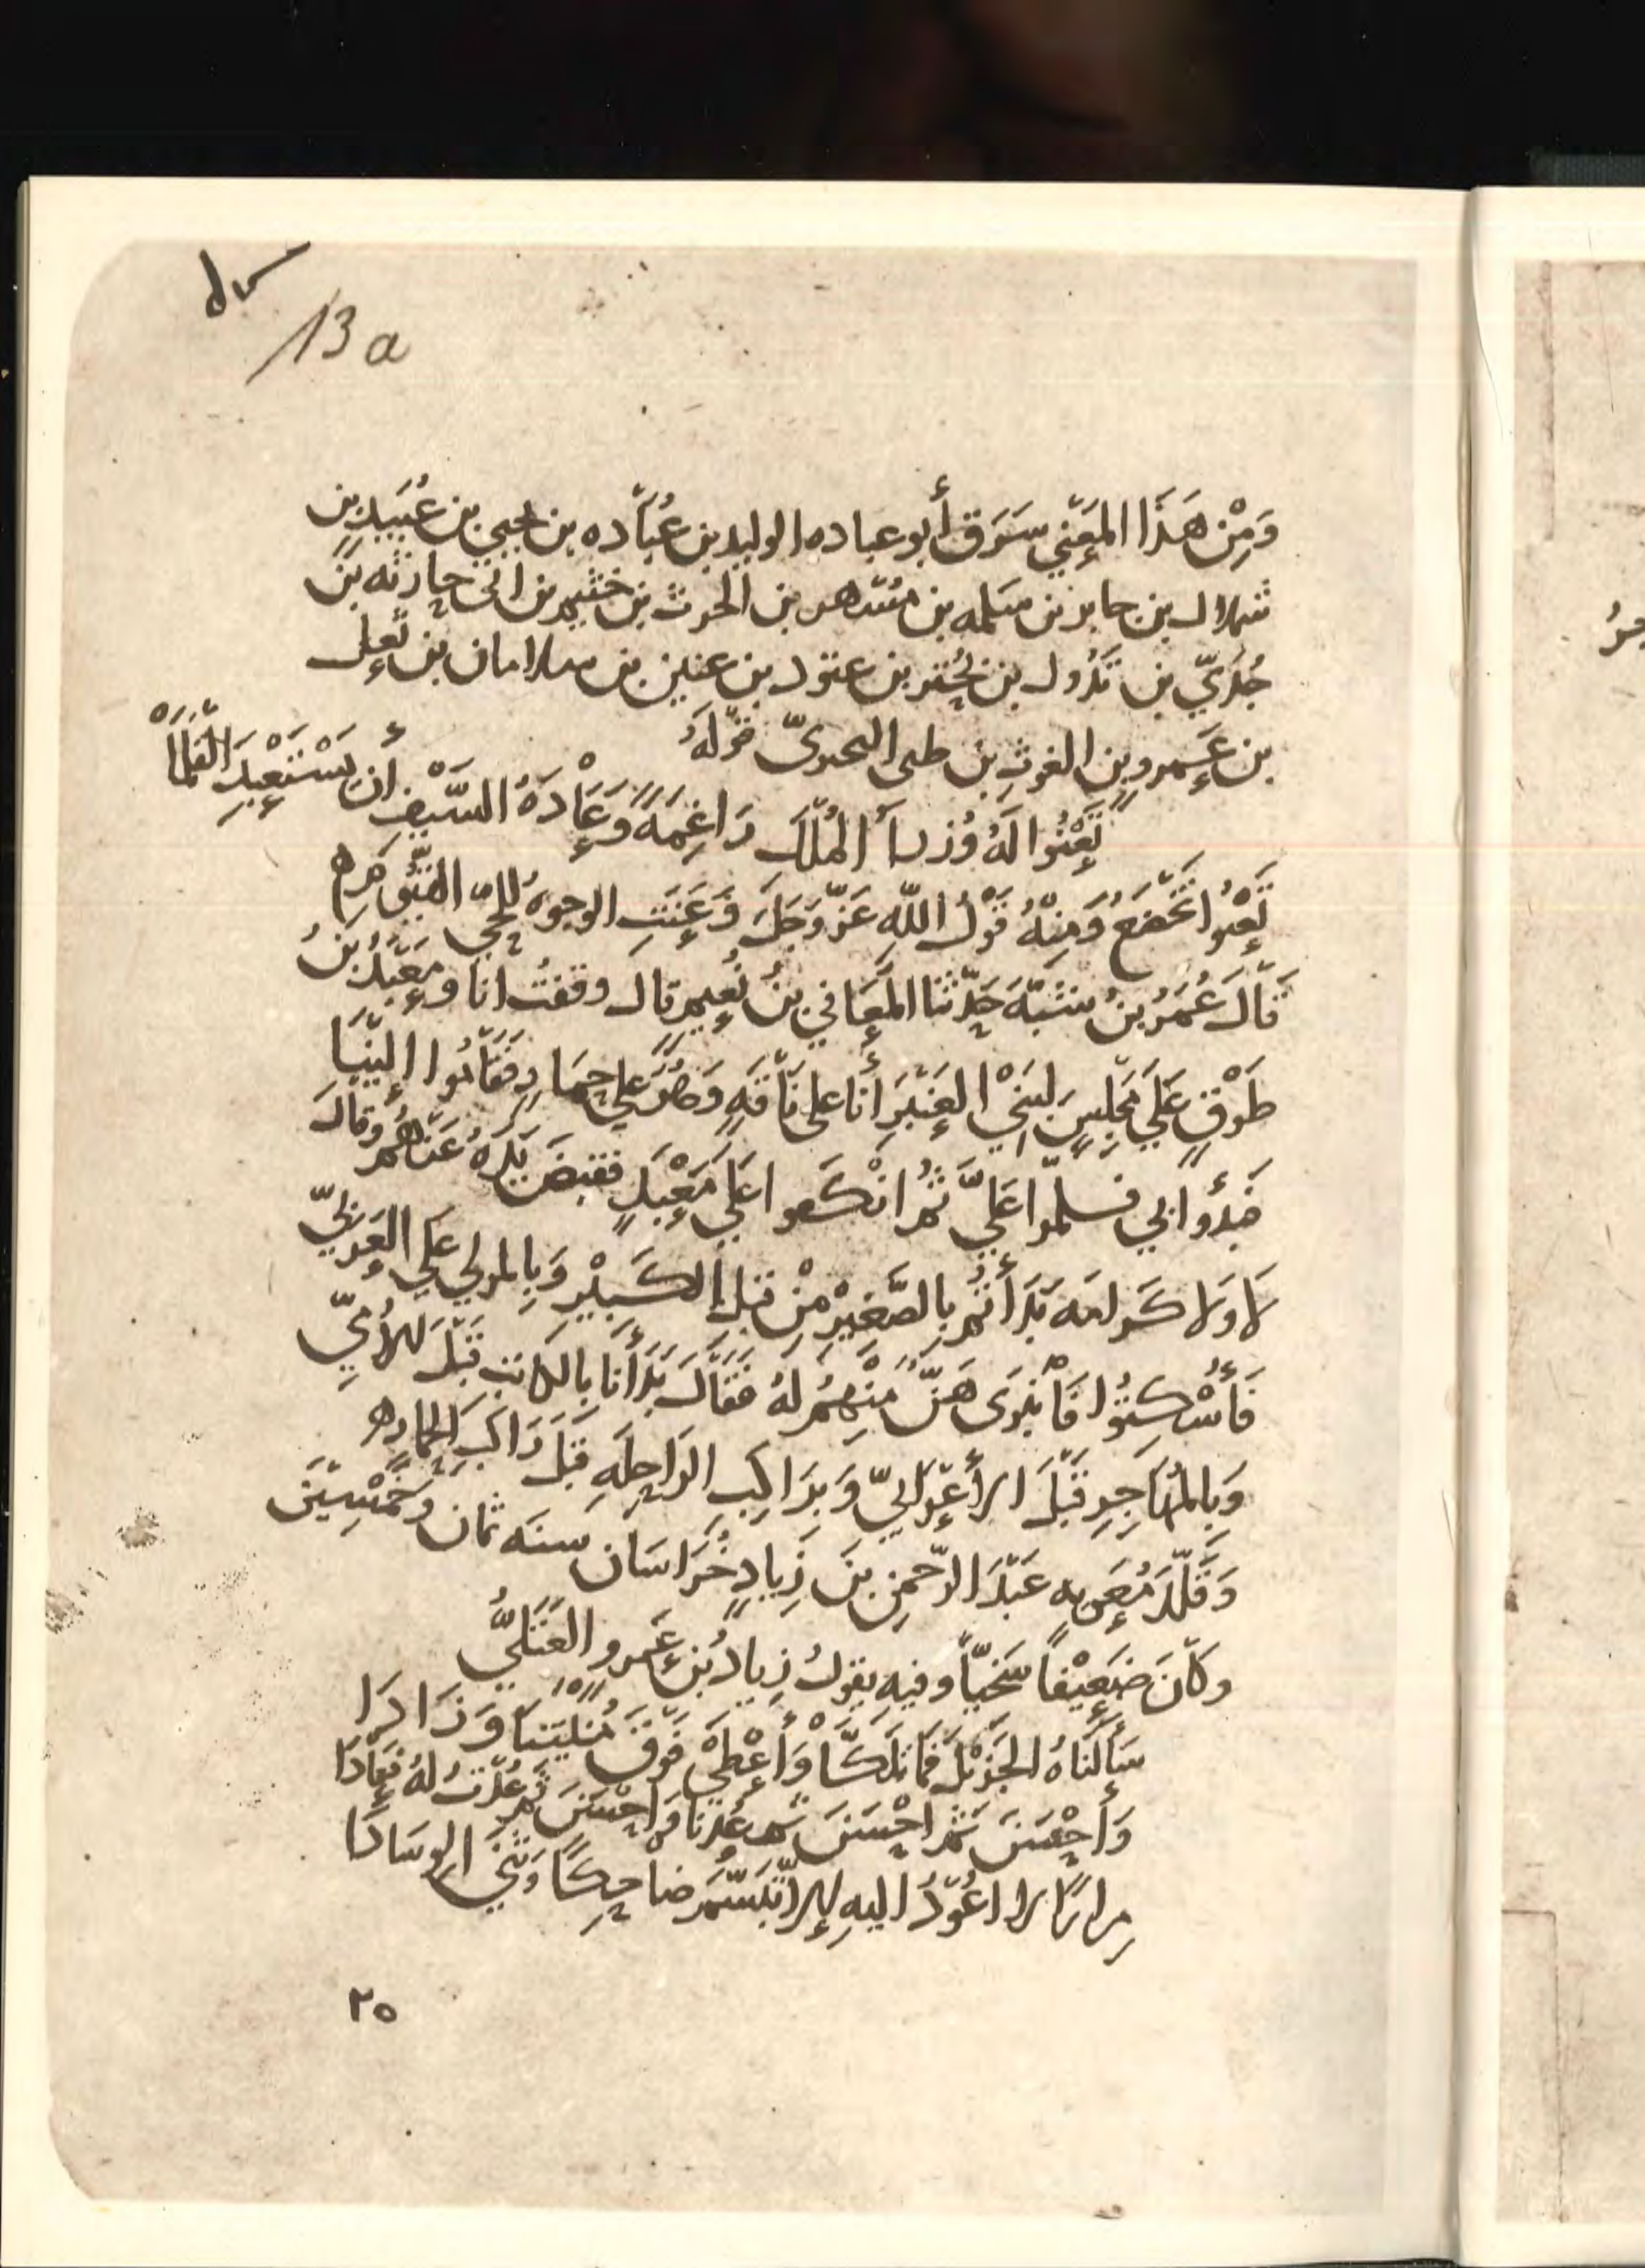 13 a
وَمِنْ هَذَا المَعْنى سَرَق أبو عباده الوليد بن عُبَاده بن يحيى بن عُبَيد بن
شملال بن جابر بن مسلمه بن مُسْهر بن الحرث بن خثيم بن ابى حارثه بن
جُدَيّ بن تَدُول بن بُحْتر بن عتود بن عنين بن سلامان بن ثُعل
بن عَمرو بن الغوثِ بن طى البحترىّ قَوْلَهُ
تَعْنُوا لَهُ وُزراُ المُلْكِ رَاغِمَةً وَعَادَةُ السَّيفِ أن يَسْتَعْبِدَ القَلَمَا
تَعْنُوا تَخْضَعُ وَمِنْهُ قَوْلُ اللّهِ عَزّ وَجَلَّ وَعَنَتِ الوجوهُ لِلحَيّ القَيُّوم
قَالَ عُمَرُ بنُ شَبَّهَ حَدّثَنا المُعَافى بنُ نُعيم قال وقفتُ انا ومَعْبَدُ بنُ
طَوْقٍ عَلَى مَجْلِسٍ لِبَنِى العَنْبَرِ أنا على نَاقَهٍ وَهُوَ على حِمَارٍ فَقَامُوا إلَيْنَا
فَبدؤا بى فسلمّوا عَلَيَّ ثُمّ انْكَفوا عَلى مَعْبَدٍ فقبضَ يَدَهُ عَنْهُم وقالَ
لا وَلا كَرامَه بَدَأتُم بِالصَّغِيْرِ مِنْ قبل الكَبِيْرِ وَبِالمَولى عَلى العَرَبِيّ
فَأُسْكِتُوا فَانْبَرَى هَنٌ مِنْهُم لهُ فَقَالَ بَدَأنَا بِالكَاتِبِ قَبْلَ الأُمِّيّ
وَبِالمُهَاجِرِ قَبْلَ الأعْرَابيّ وَبِرَاكِبِ الرَاحِلَهِ قَبْلَ رَاكِبِ الحِمَارِ
وَقَلّدَ مُعَويه عَبْدَ الرّحمنِ بنَ زِيادٍ خُرَاسَان سنَه ثمان وخَمْسِيْنَ
وكَانَ ضَعِيْفاً سَخِيّاً وفيه يقولُ زِيادُ بْن عَمرو العَتَكيُّ
سَأَلْنَاهُ الجَزْيْلَ فَمَا تَلَكَّا وَأعْطى فَوْقَ مُنْيَتِنَا وَزَادَا
وَأحْسَنَ ثُمّ احْسَنَ ثُم عُدْنا فَاحْسَنَ ثُم عُدْتُ لهُ فَعَادَا
مِرارًا لا اعُوْدُ اليهِ إلا تَبَسَّمَ ضاحِكًا وَثَنَى الوِسَادَا
٢٥